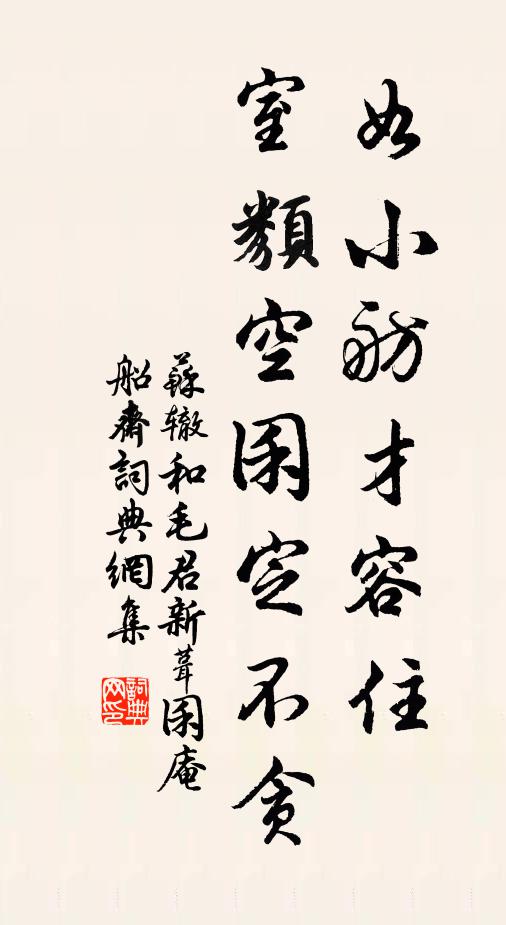 如小舫才容住
室類空囷定不貪
蘇辙和毛君新葺囷庵
船齋詞典網集
詞典网印